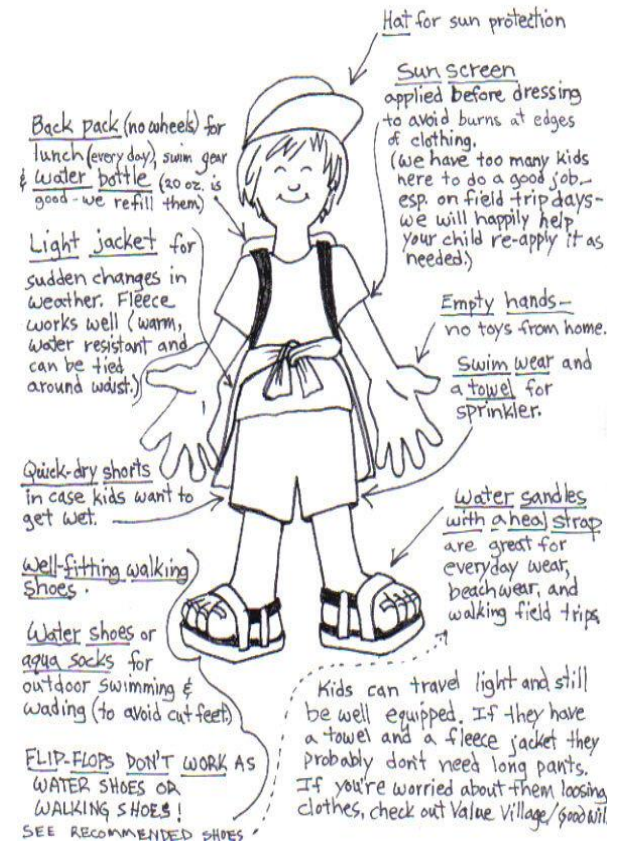 Hat for sun protection
Sun screen
applied before dressing
to avoid burns at edges
of clothing.
(we have too many kids
here to do a good job -
esp. on field trip days -
we will happily help
your child re-apply it as
needed.)
Back pack (no wheels) for
lunch (every day), swim gear
& water bottle (20 oz. is
good - we refill them)
Light jacket for
sudden changes in
weather. Fleece
works well (warm,
water resistant and
can be tied
around waist.)
Empty hands -
no toys from home.
Swim wear and
a towel for
sprinkler.
Quick-dry shorts
in case kids want to
get wet.
Water sandles
with a heal strap
are great for
everyday wear,
beachwear, and
walking field trips
Well-fitting walking
shoes.
Water shoes or
aqua socks for
outdoor swimming &
wading (to avoid cut feet.)
FLIP-FLOPS DON'T WORK AS
WATER SHOES OR
WALKING SHOES!
SEE RECOMMENDED SHOES
Kids can travel light and still
be well equipped. If they have
a towel and a fleece jacket they
probably don't need long pants.
If you're worried about them loosing
clothes, check out Value Village/Goodwil